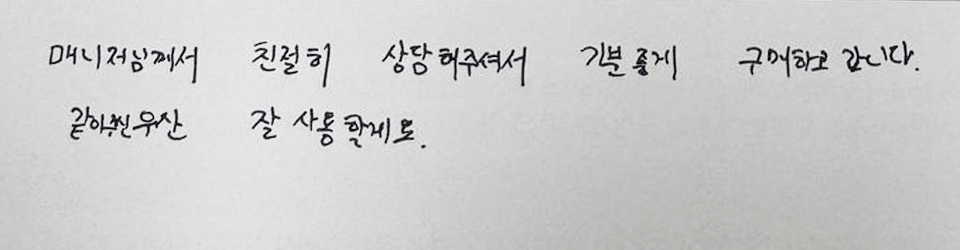 매니저님께서 친절히 상담해주셔서 기분 좋게 구매하고 갑니다.
우산 잘 사용할게요.